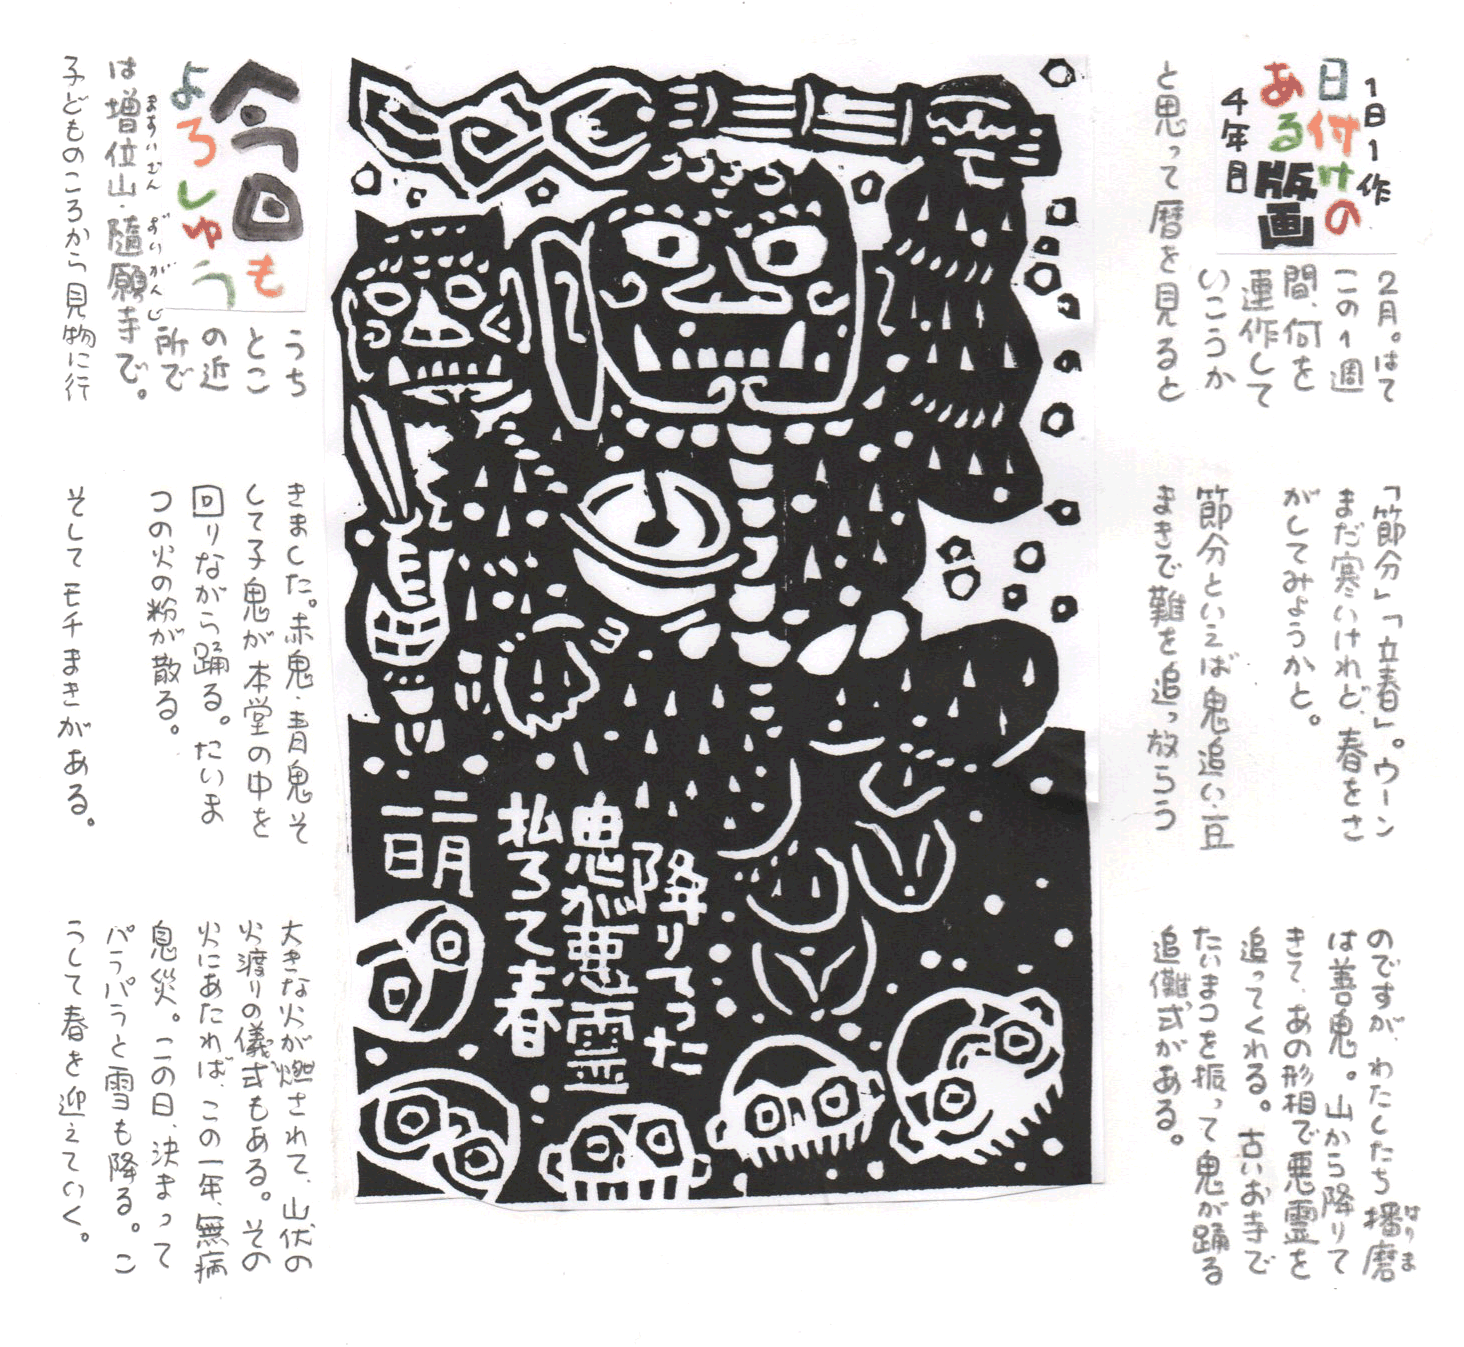 1日1作
日付けの
ある版画
4年目
2月。はて
この1週
間、何を
連作して
いこうか
と思って暦を見ると
「節分」「立春」。ウーン
まだ寒いけれど、春をさ
がしてみようかと。
節分といえば鬼追い・豆
まきで難を追っ放らう
のですが、わたしたち播磨
はりま
は善鬼。山から降りて
きて、あの形相で悪霊を
追ってくれる。古いお寺で
たいまつを振って鬼が踊る
追儺式がある。
降りてった
鬼が悪霊
払ろて春
二月
一日
今回も
よろしゅう
うち
とこ
の近
所で
は増位山・隨願寺で。
ますいざん ずいがんじ
子どものころから見物に行
きました。赤鬼・青鬼そ
して子鬼が本堂の中を
回りながら踊る。たいま
つの火の粉が散る。
そしてモチまきがある。
大きな火が燃されて、山伏の
火渡りの儀式もある。その
火にあたれば、この一年、無病
息災。この日、決まって
パラパラと雪も降る。こ
うして春を迎えていく。